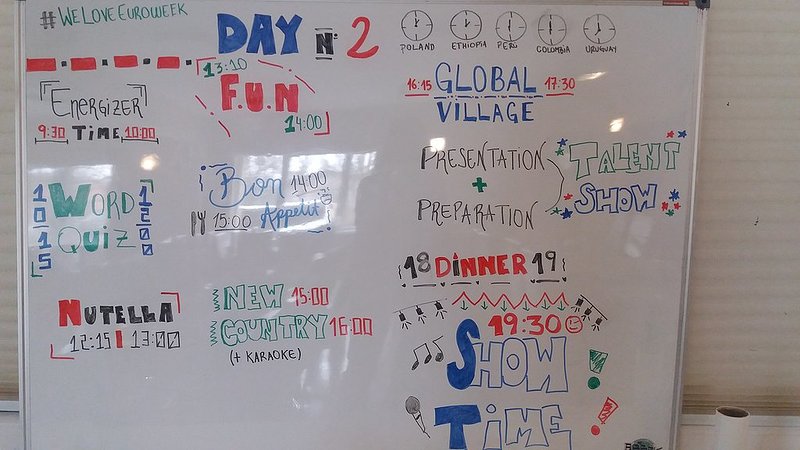 #WELOVEEUROWEEK
DAY Nº 2
POLAND ETHIOPIA PERÚ COLOMBIA URUGUAY
ENERGIZER
9:30 TIME 10:00
10 15 WORD QUIZ 12 00
NUTELLA
12:15 | 13:00
13:10
F.U.N
14:00
Bon 14:00
15:00 Appetit
NEW 15:00
COUNTRY 16:00
(+ KARAOKE)
16:15 GLOBAL 17:30
VILLAGE
PRESENTATION
+
PREPARATION
TALENT
SHOW
18 DiNNER 19
19:30
SHOW
TiME